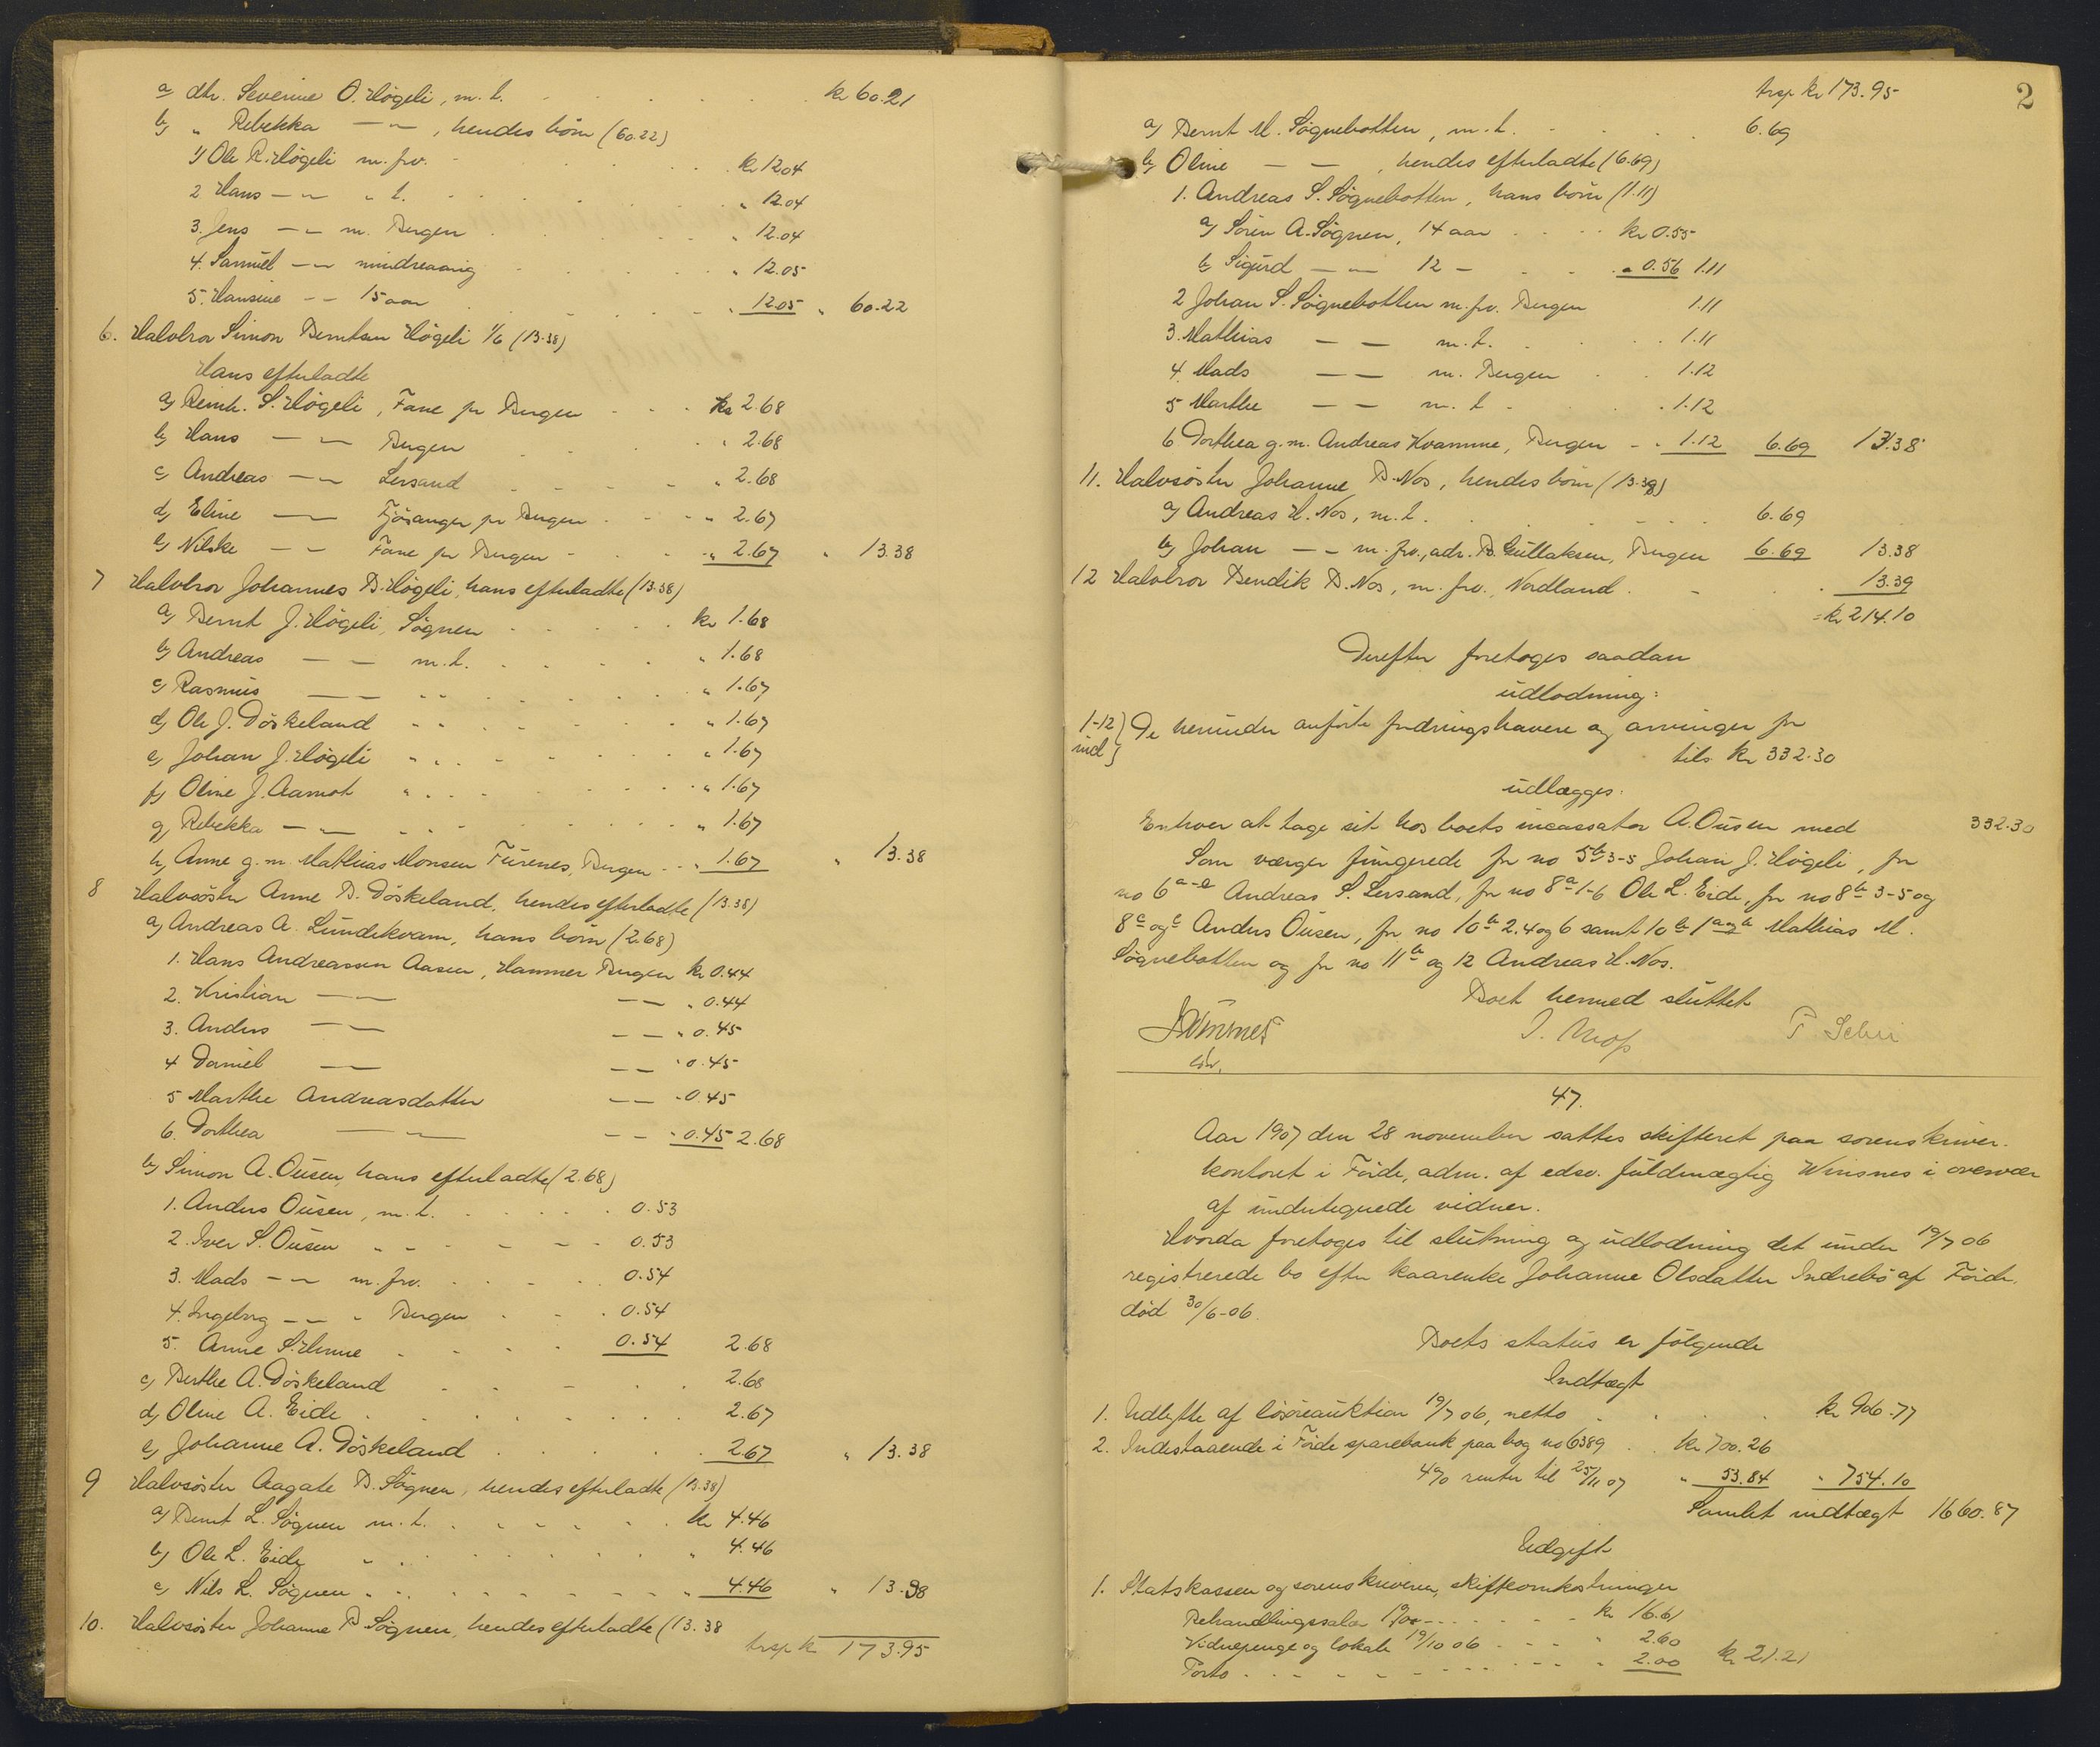 a, dtr. Severine O. Högeli, m. t. kr 60.21
b, " Rebekka — " — , hendes börn (60.22)
1) Ole R. Högeli m. frv. kr 12.04
2 Hans — " — " t. " 12.04
3. Jens — " — m. Bergen " 12.04
4. Samuel — " — mindreaarig " 12.05
5. Hansine — — 15 aar " 12.05 " 60.22
6. Halvbror Simon Berntsen Högeli 1/6 (13.38)
Hans efterladte
a, Reinh. S. Högeli, Fane pr Bergen kr 2.68
b, Hans — — Bergen " 2.68
c, Andreas — — Lersand " 2.68
d, Eline — — Fjösanger pr Bergen " 2.67
e, Nilske — — Fane pr Bergen " 2.67 " 13.38
7 Halvbror Johannes B. Högeli, hans efterladte (13.38)
a, Bernt J. Högeli, Sögnen kr 1.68
b, Andreas — — m. t. " 1.68
c, Rasmus — — " " 1.67
d, Ole J. Döskeland " " 1.67
e, Johan J. Högeli " " 1.67
f, Oline J. Aamot " " 1.67
g, Rebekka — — " " 1.67
h, Anne g. m. Mathias Monsen Furenes, Bergen " 1.67 " 13.38
8 Halvsöster Anne B. Döskeland, hendes efterladte (13.38)
a, Andreas A. Lundekvam, hans börn (2.68)
1. Hans Andreassen Aasen, Hammer Bergen kr 0.44
2. Kristian — — — — " 0.44
3. Anders — — — — " 0.45
4 Daniel — — — — " 0.45
5 Marthe Andreasdatter — — " 0.45
6. Dorthea — — — — " 0.45 2.68
b, Simon A. Ousen, hans efterladte (2.68)
1. Anders Ousen, m. t. 0.53
2. Iver S. Ousen " " 0.53
3. Mads — — m. frv. 0.54
4. Ingeborg — — " Bergen 0.54
5. Anne S. 0.54 2.68
c, Berthe A. Döskeland 2.68
d, Oline A. Eide 2.67
e, Johanne A. Döskeland 2.67 " 13.38
9 Halvsöster Aagate B. Sögnen, hendes efterladte (13.38)
a, Bernt L. Sögnen m. t. kr 4.46
b, Ole L. Eide " " 4.46
c, Nils L. Sögnen " " 4.46 " 13.38
10. Halvsöster Johanne B Sögnen, hendes efterladte (13.38
trsp k 173.95
2
trsp kr 173.95
a, Bernt M. Sögnebotten, m. t. 6.69
b, Oline — — , hendes efterladte (6.69)
1. Andreas S. Sögnebotten, hans börn (1.11)
a, Sören A. Sögnen, 14 aar kr 0.55
b, Sigurd — — 12 — " 0.56 1.11
2 Johan S. Sögnebotten m. frv. Bergen 1.11
3. Mathias — — m. t. 1.11
4. Mads — — m. Bergen 1.12
5 Marthe — — m. t 1.12
6 Dorthea g. m. Andreas Kvamme, Bergen 1.12 6.69 13.38
11. Halvsöster Johanne B. Nos, hendes börn (13.38)
a, Andreas H. Nos, m. t. 6.69
b, Johan — — m. frv., adr. B. Gullaksen, Bergen 6.69 13.38
12 Halvbror Bendik B. Nos, m. frv., Nordland 13.39
= kr 214.10
Derefter foretoges saadan
udlodning:
1-12} De herunder anförte fordringshavere og arvinger for
incl} tils. kr 332.30
udlægges:
Enhver at tage sit hos boets incassator A. Ousen med 332.30
Som værger fungerede for no 5 b 3-5 Johan J. Högeli, for
no 6 a-e Andreas S. Lersand, for no 8 a 1-6 Ole L. Eide, for no 8 b 3-5 og
8 c og e Anders Ousen, for no 10 b 2. 4 og 6 samt 10 b 1 a og b Mathias M.
Sögnebotten og for no 11 b og 12 Andreas H. Nos.
Boet hermed sluttet
47.
Aar 1907 den 28 november sattes skifteret paa sorenskriver-
kontoret i Förde, adm. af edsv. fuldmægtig Winsnes i overvær
af undertegnede vidner.
Hvorda foretoges til slutning og udlodning det under 19/7 06
registrerede bo efter kaarenke Johanne Olsdatter Indrebö af Förde,
död 30/6-06.
Boets status er fölgende
Indtægt
1. Udbytte af lösöreauktion 19/7 06, netto kr 906.77
2. Indestaaende i Förde sparebank paa bog no 6389 kr 700.26
4% renter til 25/11 07 " 53.84 " 754.10
Samlet indtægt 1660.87
Udgift
1. Statskassen og sorenskriveren, skifteomkostninger
Behandlingssalær kr 16.61
Vidnepenge og lokale 19/10 06 " 2.60
Porto " 2.00 kr 21.21